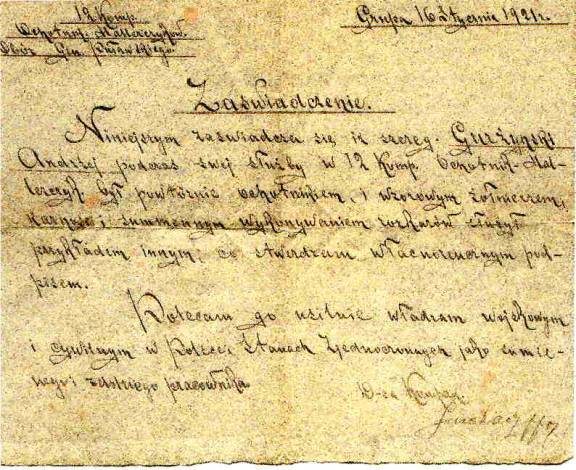 12 Komp.
Ochotnik. Hallerczyków.
Obóz Gru.
Grupa 16 Stycznia 1921 r.
Zaświadczenie.
Niniejszym zaświadcza się iż szereg. Gurżyński
Andrzej podczas swej służby w 12 Komp. Ochotnik-Hal-
lerczyk był powtórnie ochotnikiem, i wzorowym żołnierzem,
karnie i summennym wykonywaniem rozkazów służył
przykładem innym, co stwierdzam własnoręcznym pod-
pisem.
Polecam go usilnie władzom wojskowym
i cywilnym w Polsce i Stanach Zjednoczonych jako sumie-
nego i pracownika
D-ca Kompan.